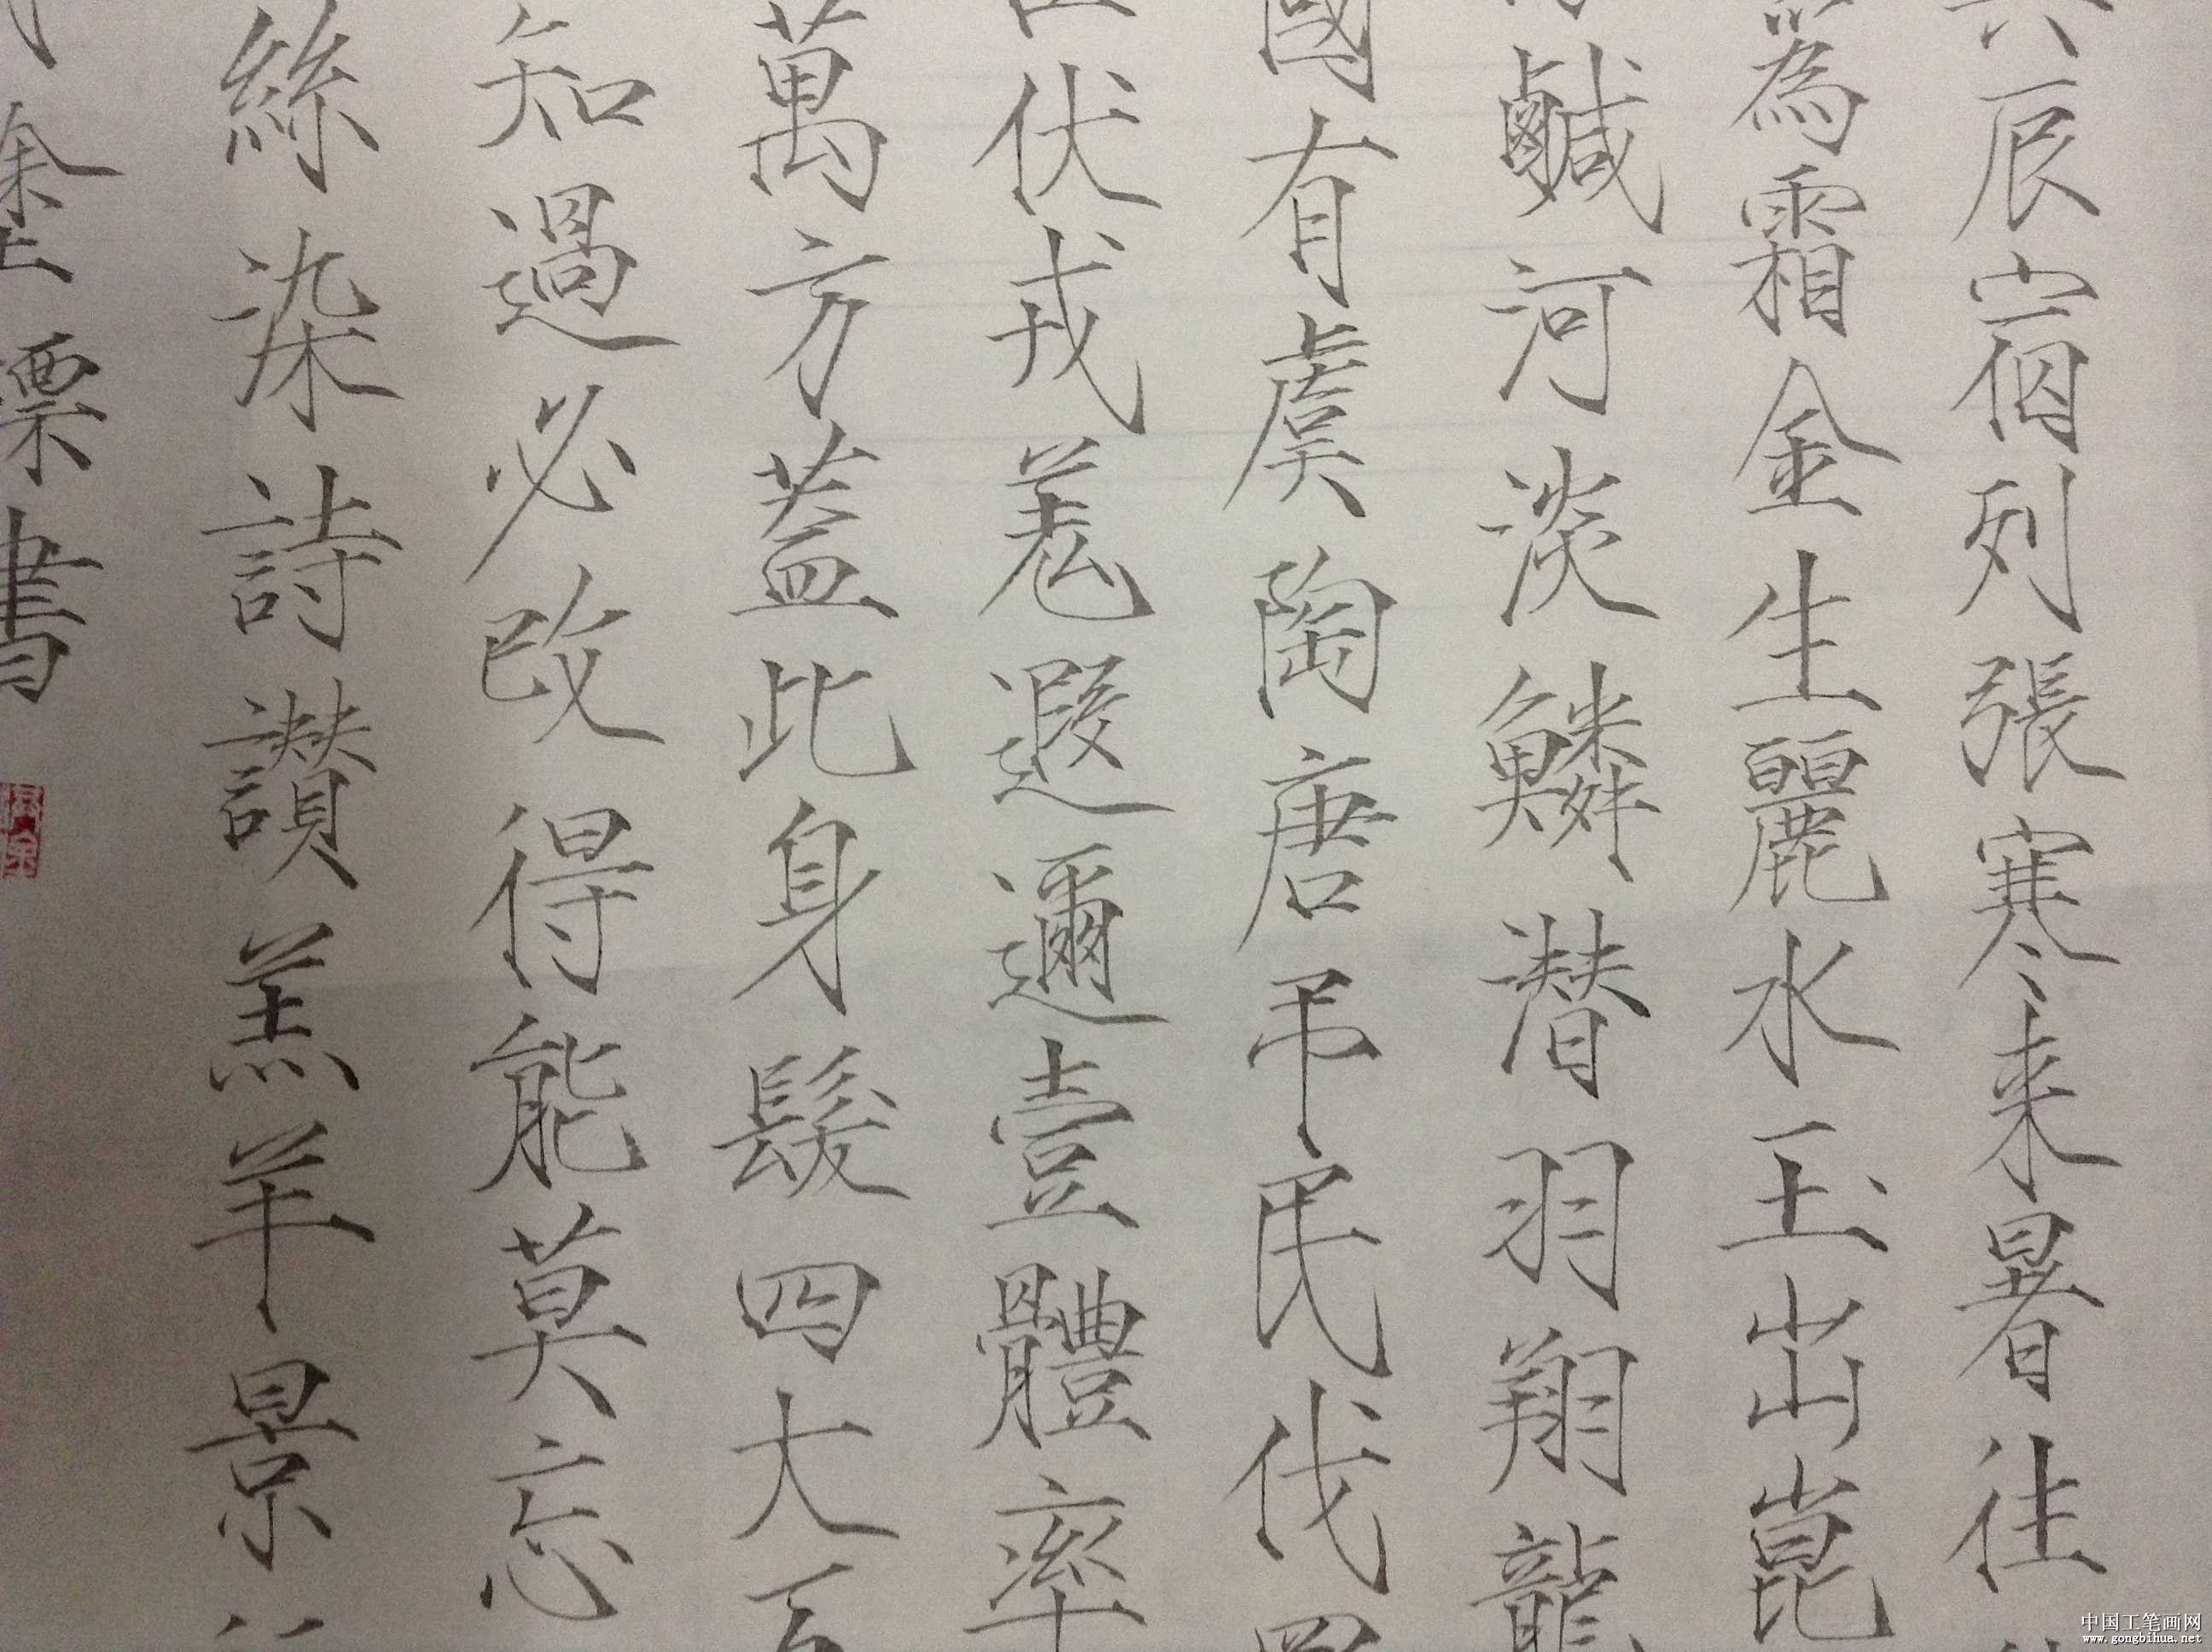 辰宿列張寒来暑往
為霜金生麗水玉出崑
鹹河淡鱗潛羽翔龍
國有虞陶唐吊民伐罪
伏戎羌遐邇壹體率
萬方蓋此身髮四大五
知過必改得能莫忘
絲染詩讃羔羊景
書
中国工笔画网
www.gongbihua.net